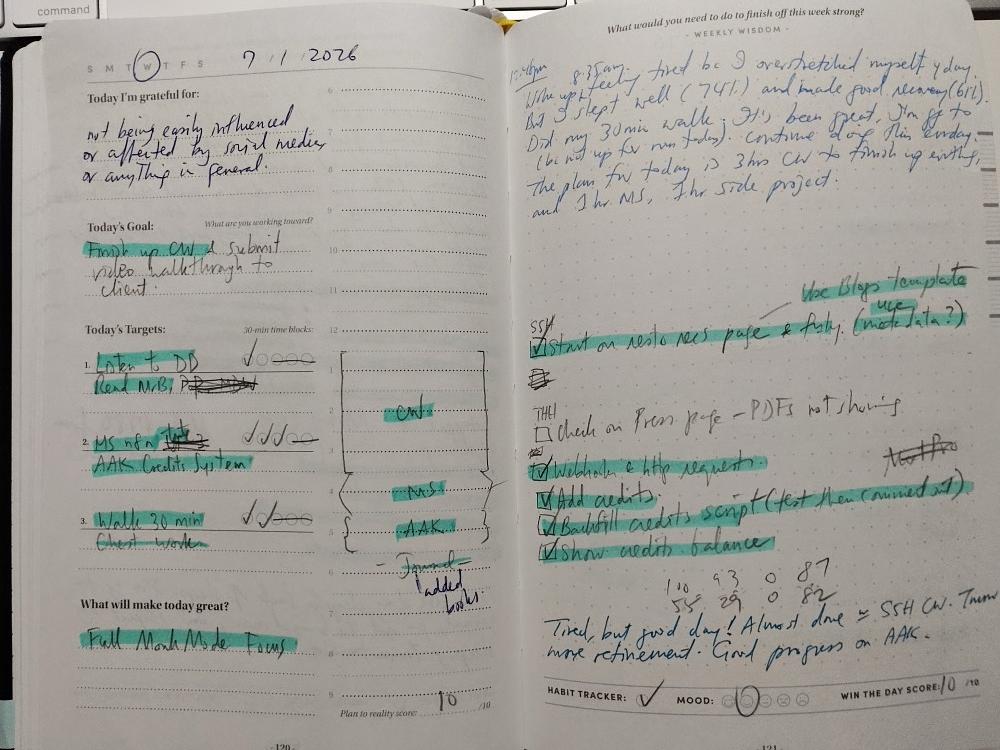 command
S M T W T F S
7 / 1 / 2026
Today I'm grateful for:
not being easily influenced
or affected by social media
or anything in general.
Today's Goal:
What are you working toward?
Finish up CW & submit
video walkthrough to
client.
Today's Targets:
30-min time blocks:
1. Listen to DD
Read MrB,
2. MS n8n
AAK Credits System
3. Walk 30 min
Chest work
What will make today great?
Full Monk Mode Focus
6
7
8
9
10
11
12
1
2
3
4
5
6
7
8
9
CW
MS
AAK
Journal
added
books
Plan to reality score: 10 /10
- 120 -
What would you need to do to finish off this week strong?
- WEEKLY WISDOM -
8:35am.
Woke up feeling tired bc I overstretched myself yday.
But I slept well (74%) and made good recovery (61%).
Did my 30min walk. It's been great, I'm to
(bc not up for run today). Continue doing this everyday.
The plan for today is 3hrs CW to finish up everything,
and 1hr MS, 1hr side project.
Use Blogs template
SSH
Start on resto recs page & fnby. (use metadata?)
THH
Check on Press page - PDFs not showing
Webhooks & http requests.
Add credits.
Backfill credits script (test then command out)
Show credits balance
100 93 0 87
55 29 0 82
Tired, but good day! Almost done w SSH CW. Tmrw
more refinement. Good progress on AAK.
HABIT TRACKER:
MOOD:
WIN THE DAY SCORE: 10 /10
- 121 -